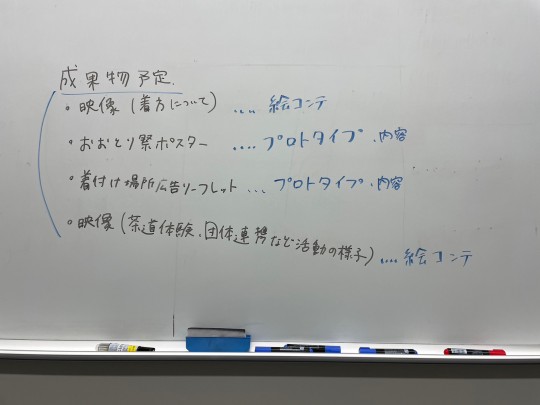 成果物予定.
・映像(着方について) .... 絵コンテ
・おおとり祭ポスター .... プロトタイプ、内容
・着付け場所広告リーフレット ... プロトタイプ、内容
・映像(茶道体験、団体連携など活動の様子) .... 絵コンテ